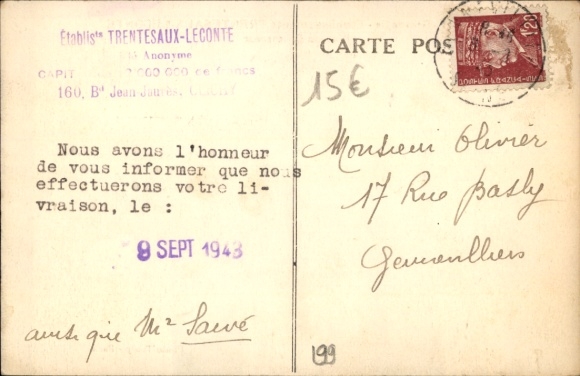 Établiste TRENTESAUX-LECONTE
Anonyme
CAPIT 2 000 000 de francs
160, Bd Jean-Jaurès, CLICHY
Nous avons l'honneur
de vous informer que nous
effectuerons votre li-
vraison, le :
9 SEPT 1943
ainsi que Mr Sauvé
CARTE POS
1F20
15€
Monsieur Olivier
17 Rue Basly
Gennevilliers
199